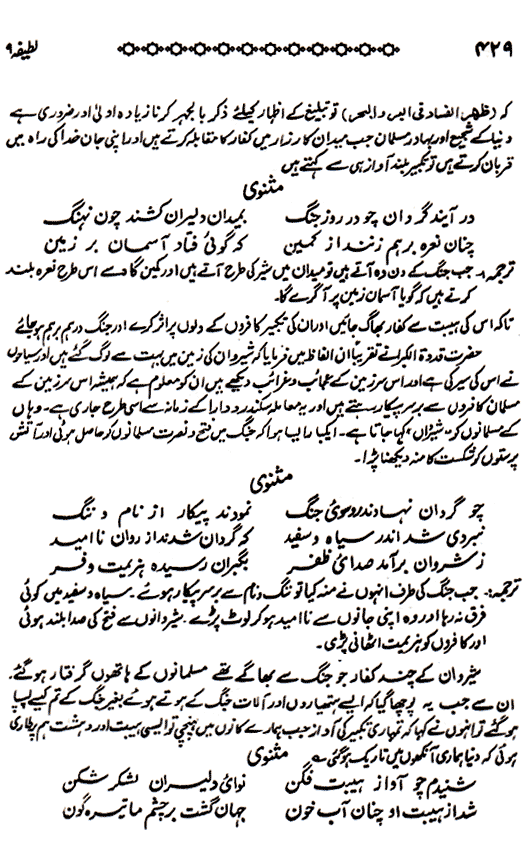 ۴۲۹ لطیفہ ۹
کہ (ظہر الفساد فی البر والبحر) تو تبلیغ کے اظہار کیلئے ذکر بالجہر کرنا زیادہ اولیٰ اور ضروری ہے
دنیا کے شجیع اور بہادر مسلمان جب میدان کارزار میں کفار کا مقابلہ کرتے ہیں اور اپنی جان خدا کی راہ میں
قربان کرتے ہیں تو تکبیر بلند آواز ہی سے کہتے ہیں
مثنوی
در آیند گردان چو در روز جنگ بمیدان دلیران کشند چون نہنگ
چنان نعرہ برہم زنند از کمین کہ گوئی فتاد آسمان بر زمین
ترجمہ:۔ جب جنگ کے دن وہ آتے ہیں تو میدان میں شیر کی طرح آتے ہیں اور کمین گاہ سے اس طرح نعرہ بلند
کرتے ہیں کہ گویا آسمان زمین پر آگرے گا۔
تاکہ اس کی ہیبت سے کفار بھاگ جائیں اور ان کی تکبیر کافروں کے دلوں پر اثر کرے اور جنگ درہم برہم ہو جائے
حضرت قدوۃ الکبرا نے تقریباً ان الفاظ میں فرمایا کہ شیروان کی زمین میں بہت سے لوگ گئے ہیں اور سیاحوں
نے اس کی سیر کی ہے اور اس سرزمین کے عجائب و غرائب دیکھے ہیں ان کو معلوم ہے کہ ہمیشہ اس سرزمین کے
مسلمان کافروں سے برسر پیکار رہتے ہیں اور یہ معاملہ سکندر و دارا کے زمانہ سے اسی طرح جاری ہے۔ وہاں
کے مسلمانوں کو "شیراں" کہا جاتا ہے۔ ایکبار ایسا ہوا کہ جنگ میں فتح و نصرت مسلمانوں کو حاصل ہوئی اور آتش
پرستوں کو شکست کا منہ دیکھنا پڑا۔
مثنوی
چو گردان نہادند رو سوئ جنگ نمودند پیکار از نام و ننگ
نبردی شد اندر سیاہ و سفید کہ گردان شدند از روان نا امید
ز شروان برآمد صدائ ظفر بگبران رسیدہ ہزیمت و فر
ترجمہ:۔ جب جنگ کی طرف انہوں نے منہ کیا تو ننگ و نام سے برسر پیکار ہوئے۔ سیاہ و سفید میں کوئی
فرق نہ رہا اور وہ اپنی جانوں سے نا امید ہو کر لوٹ پڑے۔ شیروانوں سے فتح کی صدا بلند ہوئی
اور کافروں کو ہزیمت اٹھانی پڑی۔
شیروان کے چند کفار جو جنگ سے بھاگے تھے مسلمانوں کے ہاتھوں گرفتار ہو گئے۔
ان سے جب یہ پوچھا گیا کہ ایسے ہتھیاروں اور آلات جنگ کے ہوتے ہوئے بغیر جنگ کے تم کیسے پسپا
ہو گئے تو انہوں نے کہا کہ تمہاری تکبیر کی آواز جب ہمارے کانوں میں پہنچی تو ایسی ہیبت اور دہشت ہم پر طاری
ہوئی کہ دنیا ہماری آنکھوں میں تاریک ہو گئی۔ مثنوی
شنیدم چو آواز ہیبت فگن نوائ دلیران لشکر شکن
شد از ہیبت او چنان آب خون جہان گشت بر چشم ما تیرہ گون